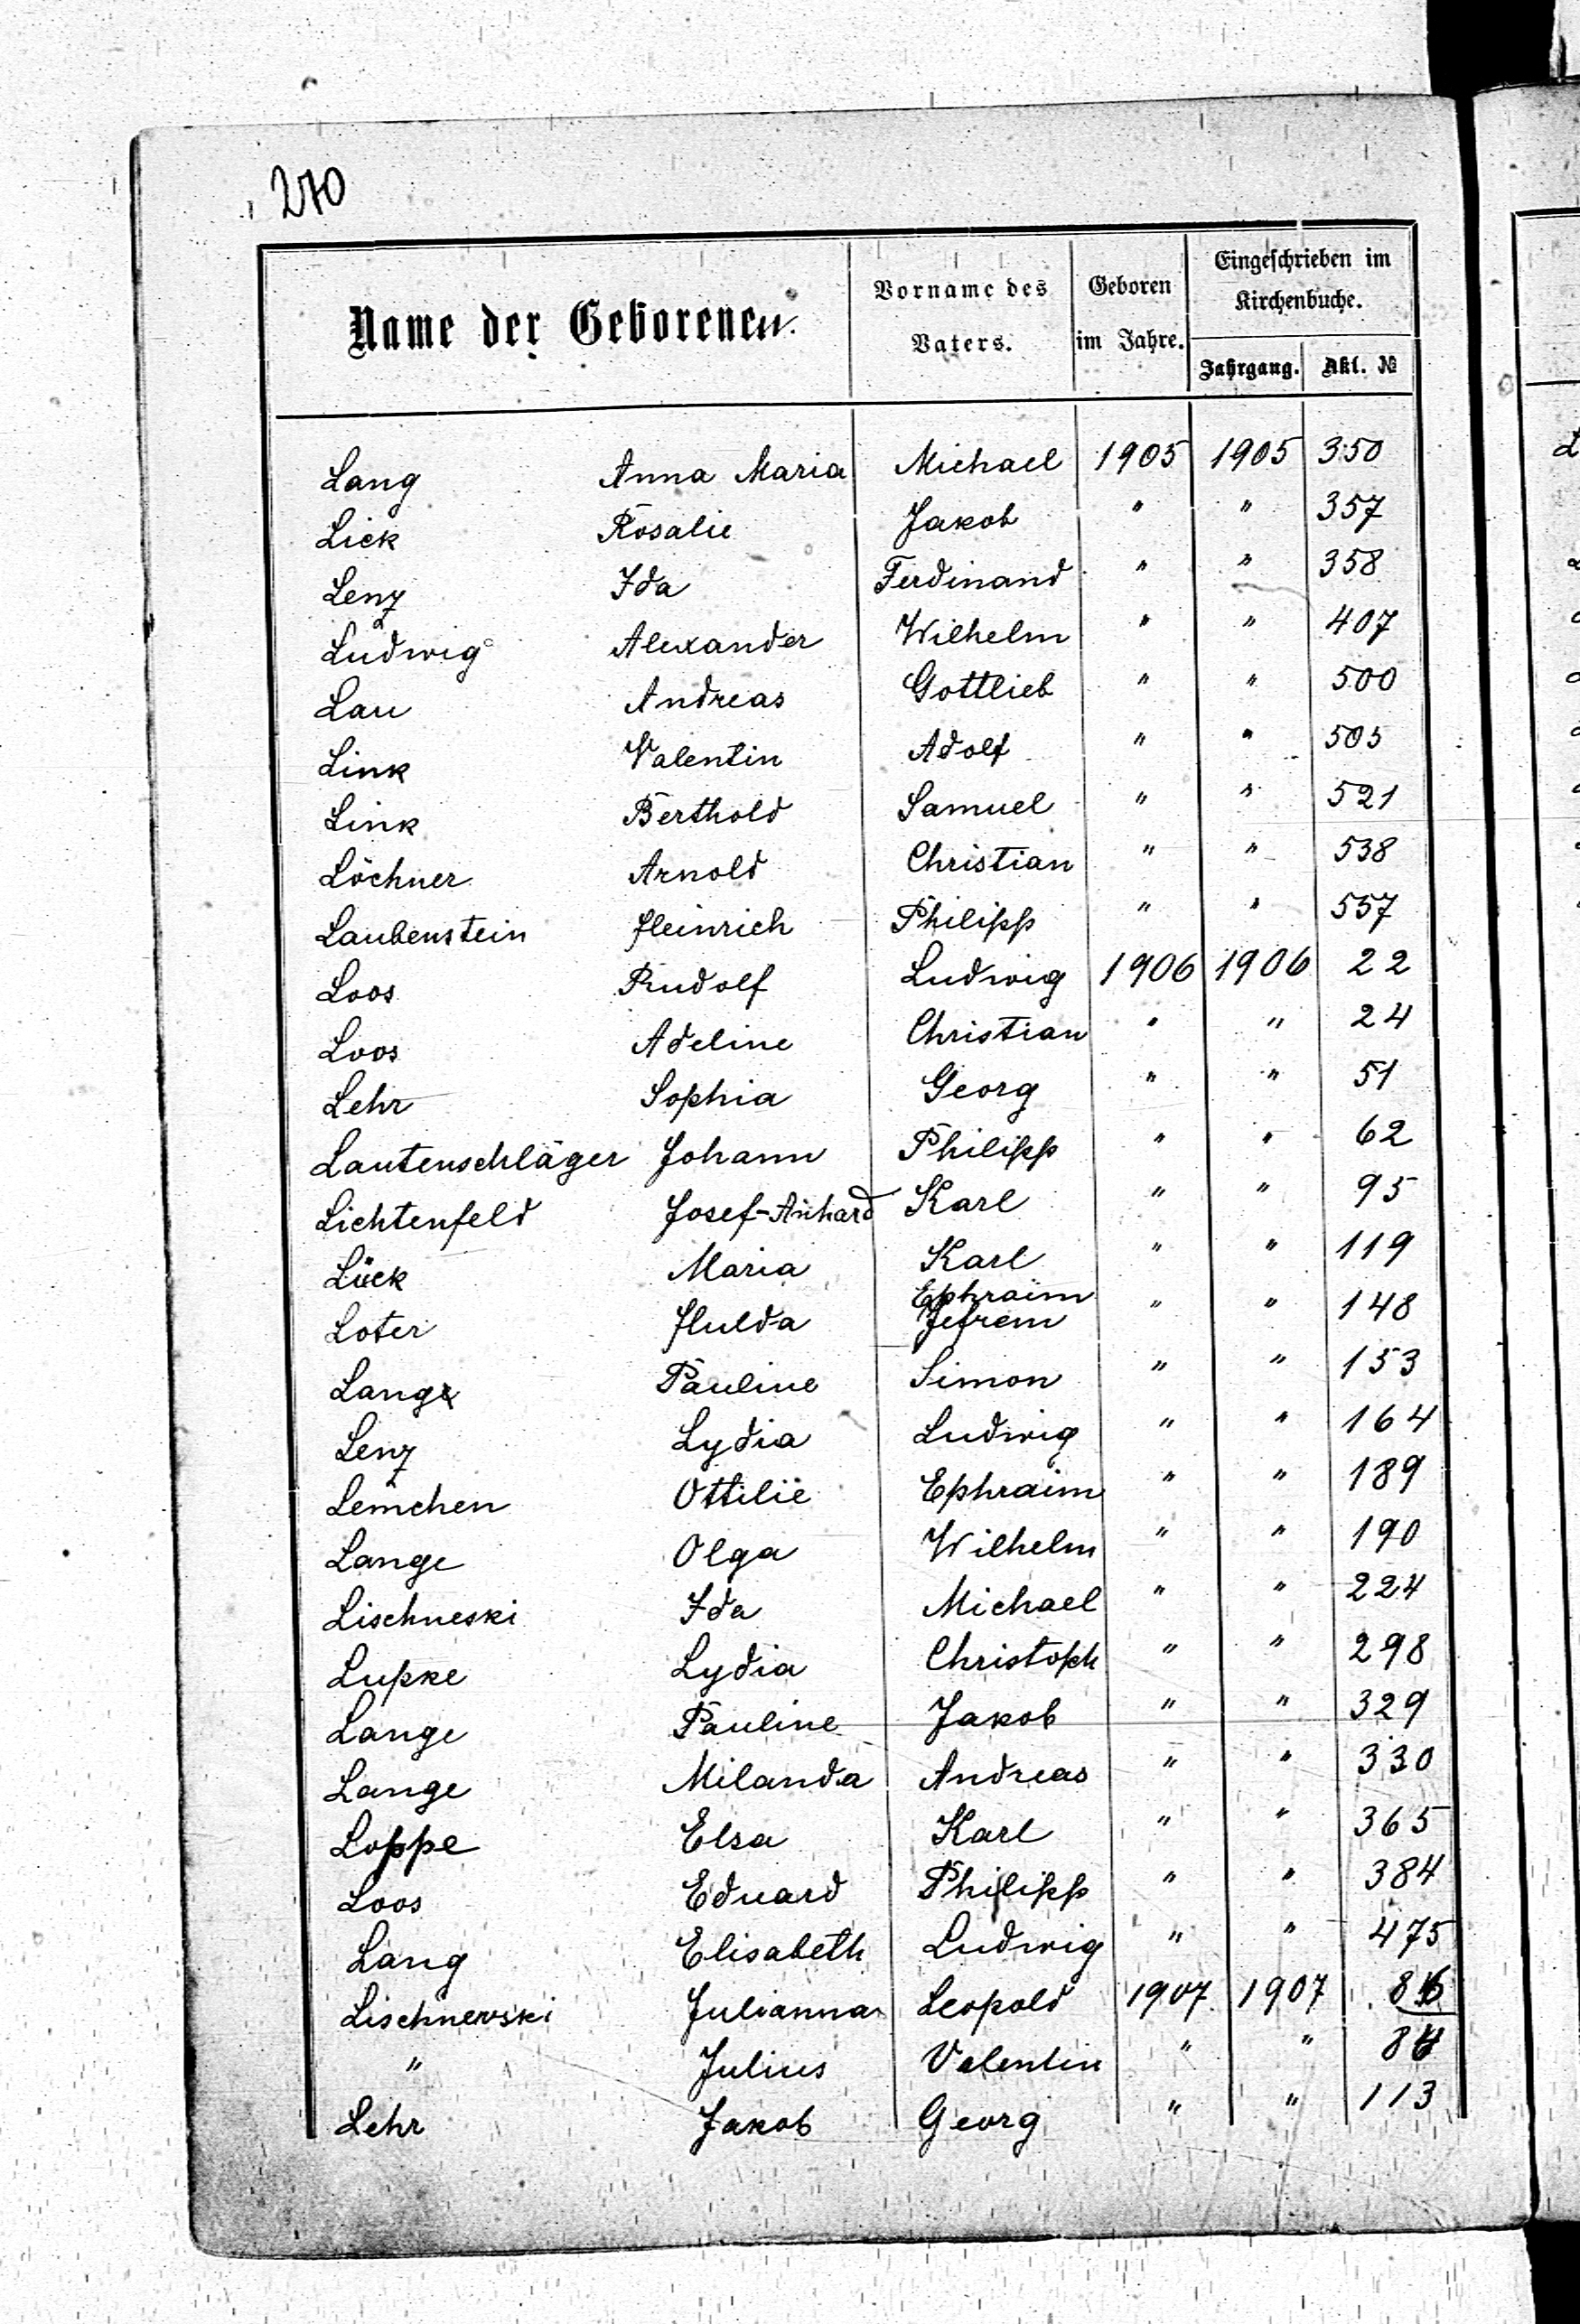 270
Name der Geborenen.
Vorname des Vaters.
Geboren im Jahre.
Eingeschrieben im Kirchenbuche.
Jahrgang. Akt. №
Lang Anna Maria Michael 1905 1905 350
Lick Rosalie Jakob " " 357
Lenz Ida Ferdinand " " 358
Ludwig Alexander Wilhelm " " 407
Lau Andreas Gottlieb " " 500
Link Valentin Adolf " " 505
Link Berthold Samuel " " 521
Löchner Arnold Christian " " 538
Laubenstein Heinrich Philipp " " 557
Loos Rudolf Ludwig 1906 1906 22
Loos Adeline Christian " " 24
Lehr Sophia Georg " " 51
Lautenschläger Johann Philipp " " 62
Lichtenfeld Josef- Karl " " 95
Lück Maria Karl " " 119
Loter Hulda Ephraim Jefrem " " 148
Lang Pauline Simon " " 153
Lenz Lydia Ludwig " " 164
Lemchen Ottilie Ephraim " " 189
Lange Olga Wilhelm " " 190
Lischneski Ida Michael " " 224
Lupke Lydia Christoph " " 298
Lange Pauline Jakob " " 329
Lange Milanda Andreas " " 330
Loppe Elsa Karl " " 365
Loos Eduard Philipp " " 384
Lang Elisabeth Ludwig " " 475
Lischnewski Julianna Leopold 1907 1907
" Julius Valentin " "
Lehr Jakob Georg " " 113